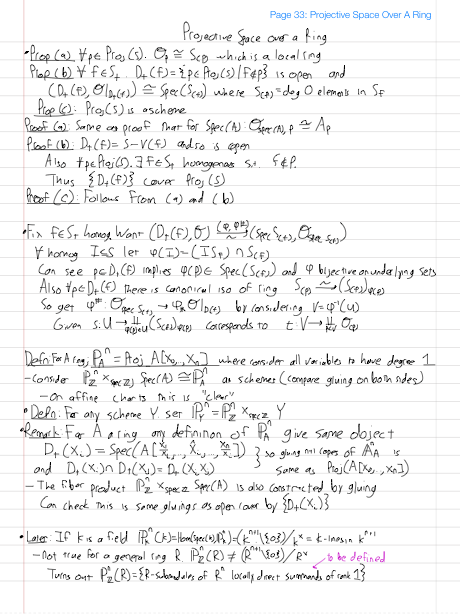 Page 33: Projective Space Over A Ring
Projective Space over a Ring
• Prop (a) ∀p∈Proj(S). 𝒪_p ≅ S_(p) which is a local ring
Prop (b) ∀ f∈S₊. D₊(f)={p∈Proj(S) | f∉p} is open and
(D₊(f), 𝒪|_D₊(f)) ≅ Spec(S_(f)) where S_(f) = deg 0 elements in S_f
Prop (c): Proj(S) is a scheme
Proof (a): Same as proof that for Spec(A): 𝒪_Spec(A),p ≅ A_p
Proof (b): D₊(f) = S-V(f) and so is open
Also ∀p∈Proj(S). ∃ f∈S₊ homogenous s.t. f∉p.
Thus {D₊(f)} cover Proj(S)
Proof (c): Follows from (a) and (b)
• Fix f∈S₊ homog. Want (D₊(f), 𝒪) (φ, φ^#) ⥲ (Spec S_(f), 𝒪_Spec S_(f))
∀ homog I⊆S let φ(I)=(IS_f)∩S_(f)
Can see p∈D₊(f) implies φ(p)∈ Spec(S_(f)) and φ bijective on underlying sets
Also ∀p∈D₊(f) there is canonical iso of ring S_(p) ⥲ (S_(f))_φ(p)
So get φ^#: 𝒪_Spec S_(f) → φ_* 𝒪|_D₊(f) by considering V=φ⁻¹(U)
Given s: U→ ∐_φ(p)∈U (S_(f))_φ(p) corresponds to t: V→ ∐_p∈V 𝒪_(p)
Defn: For A ring, ℙ_A^n = Proj A[x₀,..,x_n] where consider all variables to have degree 1
- Consider ℙ_ℤ^n ×_Spec ℤ Spec(A) ≅ ℙ_A^n as schemes (compare gluing on both sides)
- On affine charts this is "clear"
• Defn: For any scheme Y set ℙ_Y^n = ℙ_ℤ^n ×_Spec ℤ Y
• Remark: For A a ring any definition of ℙ_A^n give same object
D₊(x_i) = Spec(A[x₀/x_i,..,x̂_i,..,x_n/x_i]) } so gluing n+1 copes of 𝔸_A^n is
and D₊(x_i)∩D₊(x_j) = D₊(x_i x_j) same as Proj(A[x₀,..,x_n])
- The fiber product ℙ_ℤ^n ×_Spec ℤ Spec(A) is also constructed by gluing
Can check this is same gluings as open cover by {D₊(x_i)}
• Later: If k is a field ℙ_k^n(k)=Hom(Spec(k),ℙ_k^n)=(k^(n+1)\{0})/k^x = k-lines in k^(n+1)
- Not true for a general ring R ℙ_ℤ^n(R) ≠ (R^(n+1)\{0})/R^x
to be defined
Turns out ℙ_ℤ^n(R) = {R-submodules of R^n locally direct summands of rank 1}